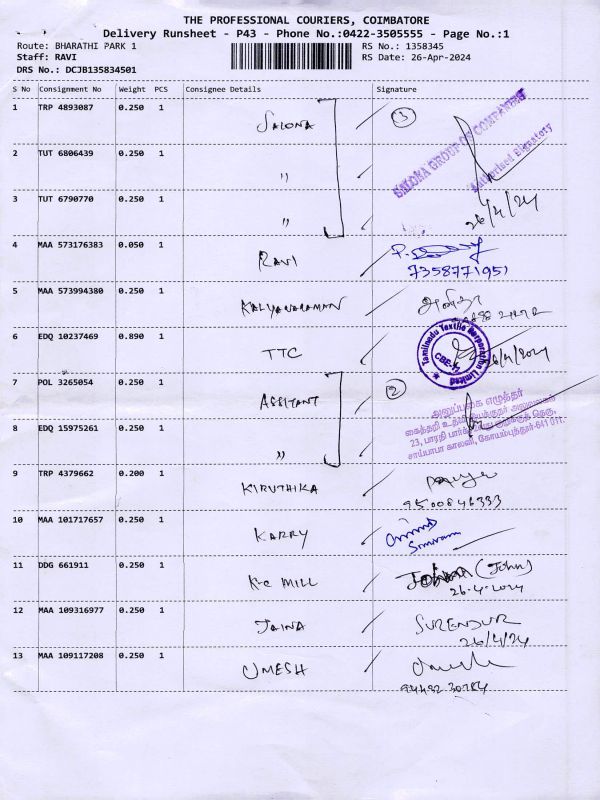 THE PROFESSIONAL COURIERS, COIMBATORE
Delivery Runsheet - P43 - Phone No.:0422-3505555 - Page No.:1
Route: BHARATHI PARK 1 RS No.: 1358345
Staff: RAVI RS Date: 26-Apr-2024
DRS No.: DCJB135834501
S No Consignment No Weight PCS Consignee Details Signature
1 TRP 4893087 0.250 1 SALONA 3
SALONA GROUP OF COMPANIES
Authorised Signatory
2 TUT 6806439 0.250 1 "
3 TUT 6790770 0.250 1 " 26/4/24
4 MAA 573176383 0.050 1 RAVI
7358771951
5 MAA 573994380 0.250 1 KALYANARAMAN
6 EDQ 10237469 0.890 1 TTC 26/4/2024
Tamilnadu Textile Corporation Limited
CBE-11
7 POL 3265054 0.250 1 ASSITANT 2
அலுப்புகை எழுத்தர்
8 EDQ 15975261 0.250 1 "
சாய்பாபா காலனி, கோயம்புத்தூர்-641 011.
9 TRP 4379662 0.200 1 KIRUTHIKA
9500846333
10 MAA 101717657 0.250 1 KARRY
11 DDG 661911 0.250 1 K-C MILL (John)
26-4-2024
12 MAA 109316977 0.250 1 JAINA SURENDUR
26/4/24
13 MAA 109117208 0.250 1 UMESH Umesh